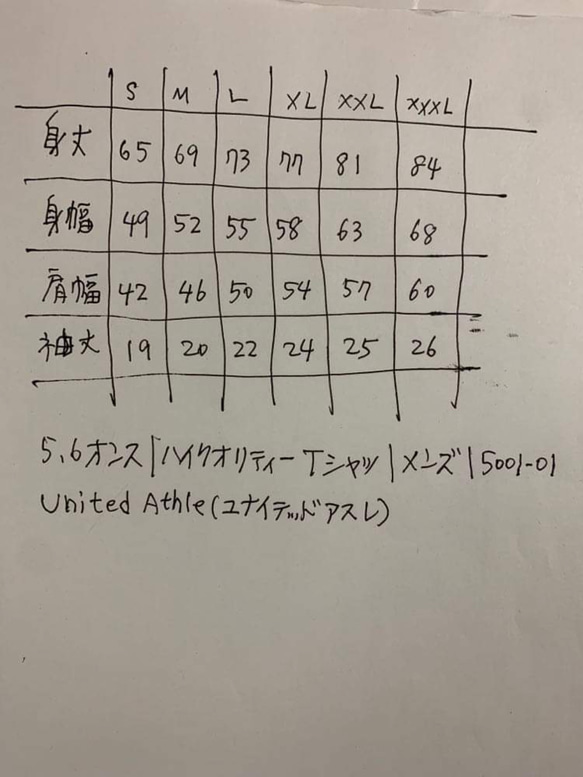 S M L XL XXL XXXL
身丈 65 69 73 77 81 84
身幅 49 52 55 58 63 68
肩幅 42 46 50 54 57 60
袖丈 19 20 22 24 25 26
5.6オンス|ハイクオリティーTシャツ|メンズ|5001-01
United Athle(ユナイテッドアスレ)